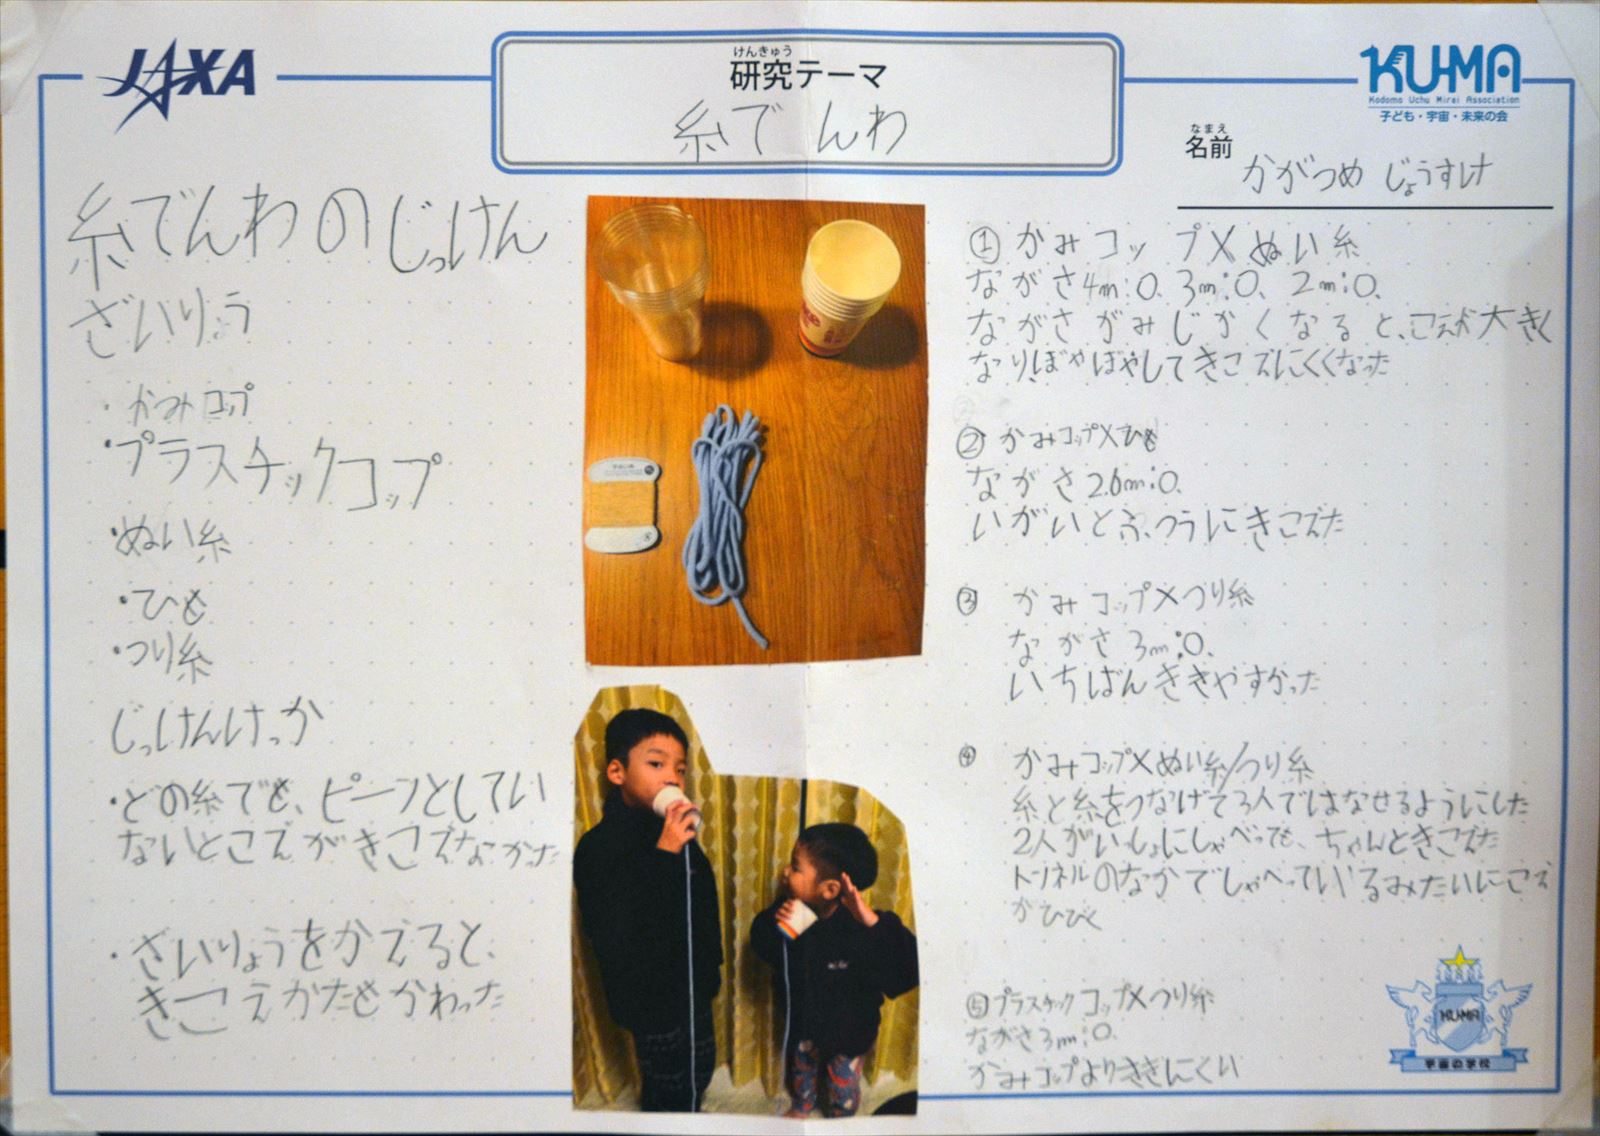 JAXA
けんきゅう
研究テーマ
糸でんわ
KU-MA
Kodomo Uchu Mirai Association
子ども・宇宙・未来の会
なまえ
名前
かがつめ じょうすけ
糸でんわのじっけん
ざいりょう
・かみコップ
・プラスチックコップ
・ぬい糸
・ひも
・つり糸
じっけんけっか
・どの糸でも、ピーンとしてい
ないとこえがきこえなかった
・ざいりょうをかえると、
きこえかたもかわった
①かみコップ×ぬい糸
ながさ4m:○、3m:○、2m:○、
ながさがみじかくなると、こえが大きく
なり、ぼやぼやしてきこえにくくなった
②かみコップ×ひも
ながさ2.6m:○、
いがいとふつうにきこえた
③ かみコップ×つり糸
ながさ3m:○、
いちばんききやすかった
④ かみコップ×ぬい糸/つり糸
糸と糸をつなげて3人ではなせるようにした
2人がいっしょにしゃべっても、ちゃんときこえた
トンネルのなかでしゃべっているみたいにこえ
がひびく
⑤プラスチックコップ×つり糸
ながさ3m:○、
かみコップよりききにくい
KU-MA
宇宙の学校